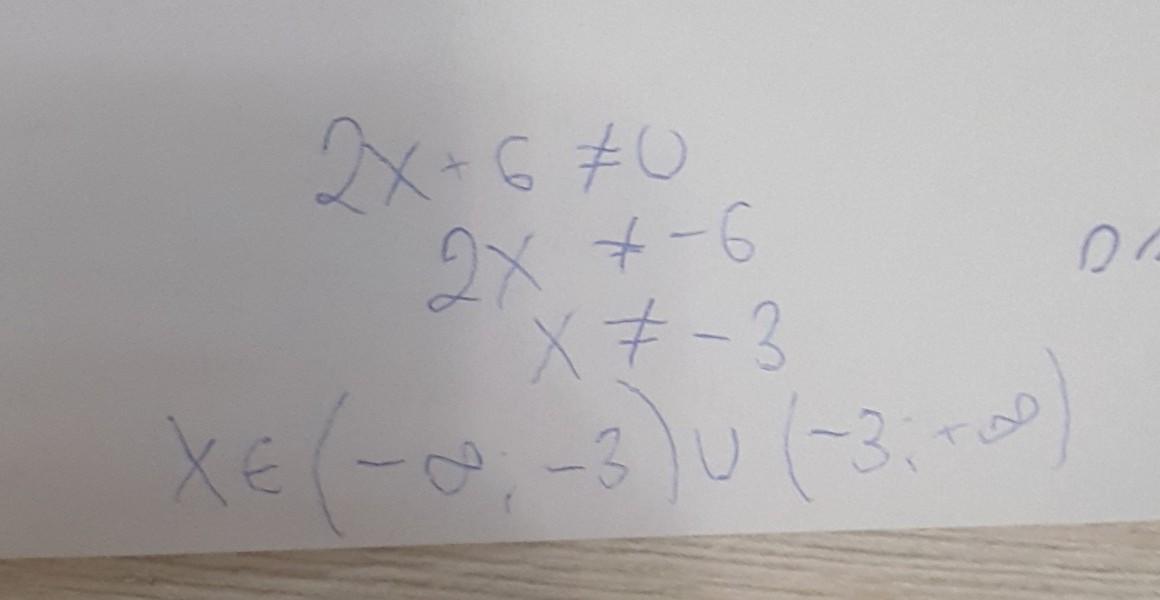 2x + 6 ≠ 0
2x ≠ -6
x ≠ -3
x ∈ (-∞; -3) ∪ (-3; +∞)